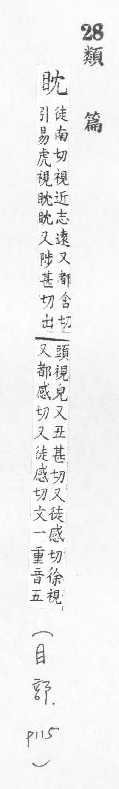 28
類篇
眈
徒南切視近志遠又都含切
引易虎視眈眈又陟甚切出
頭視皃又丑甚切又徒感切徐視
又都感切又徒感切文一重音五
(目部. p115)